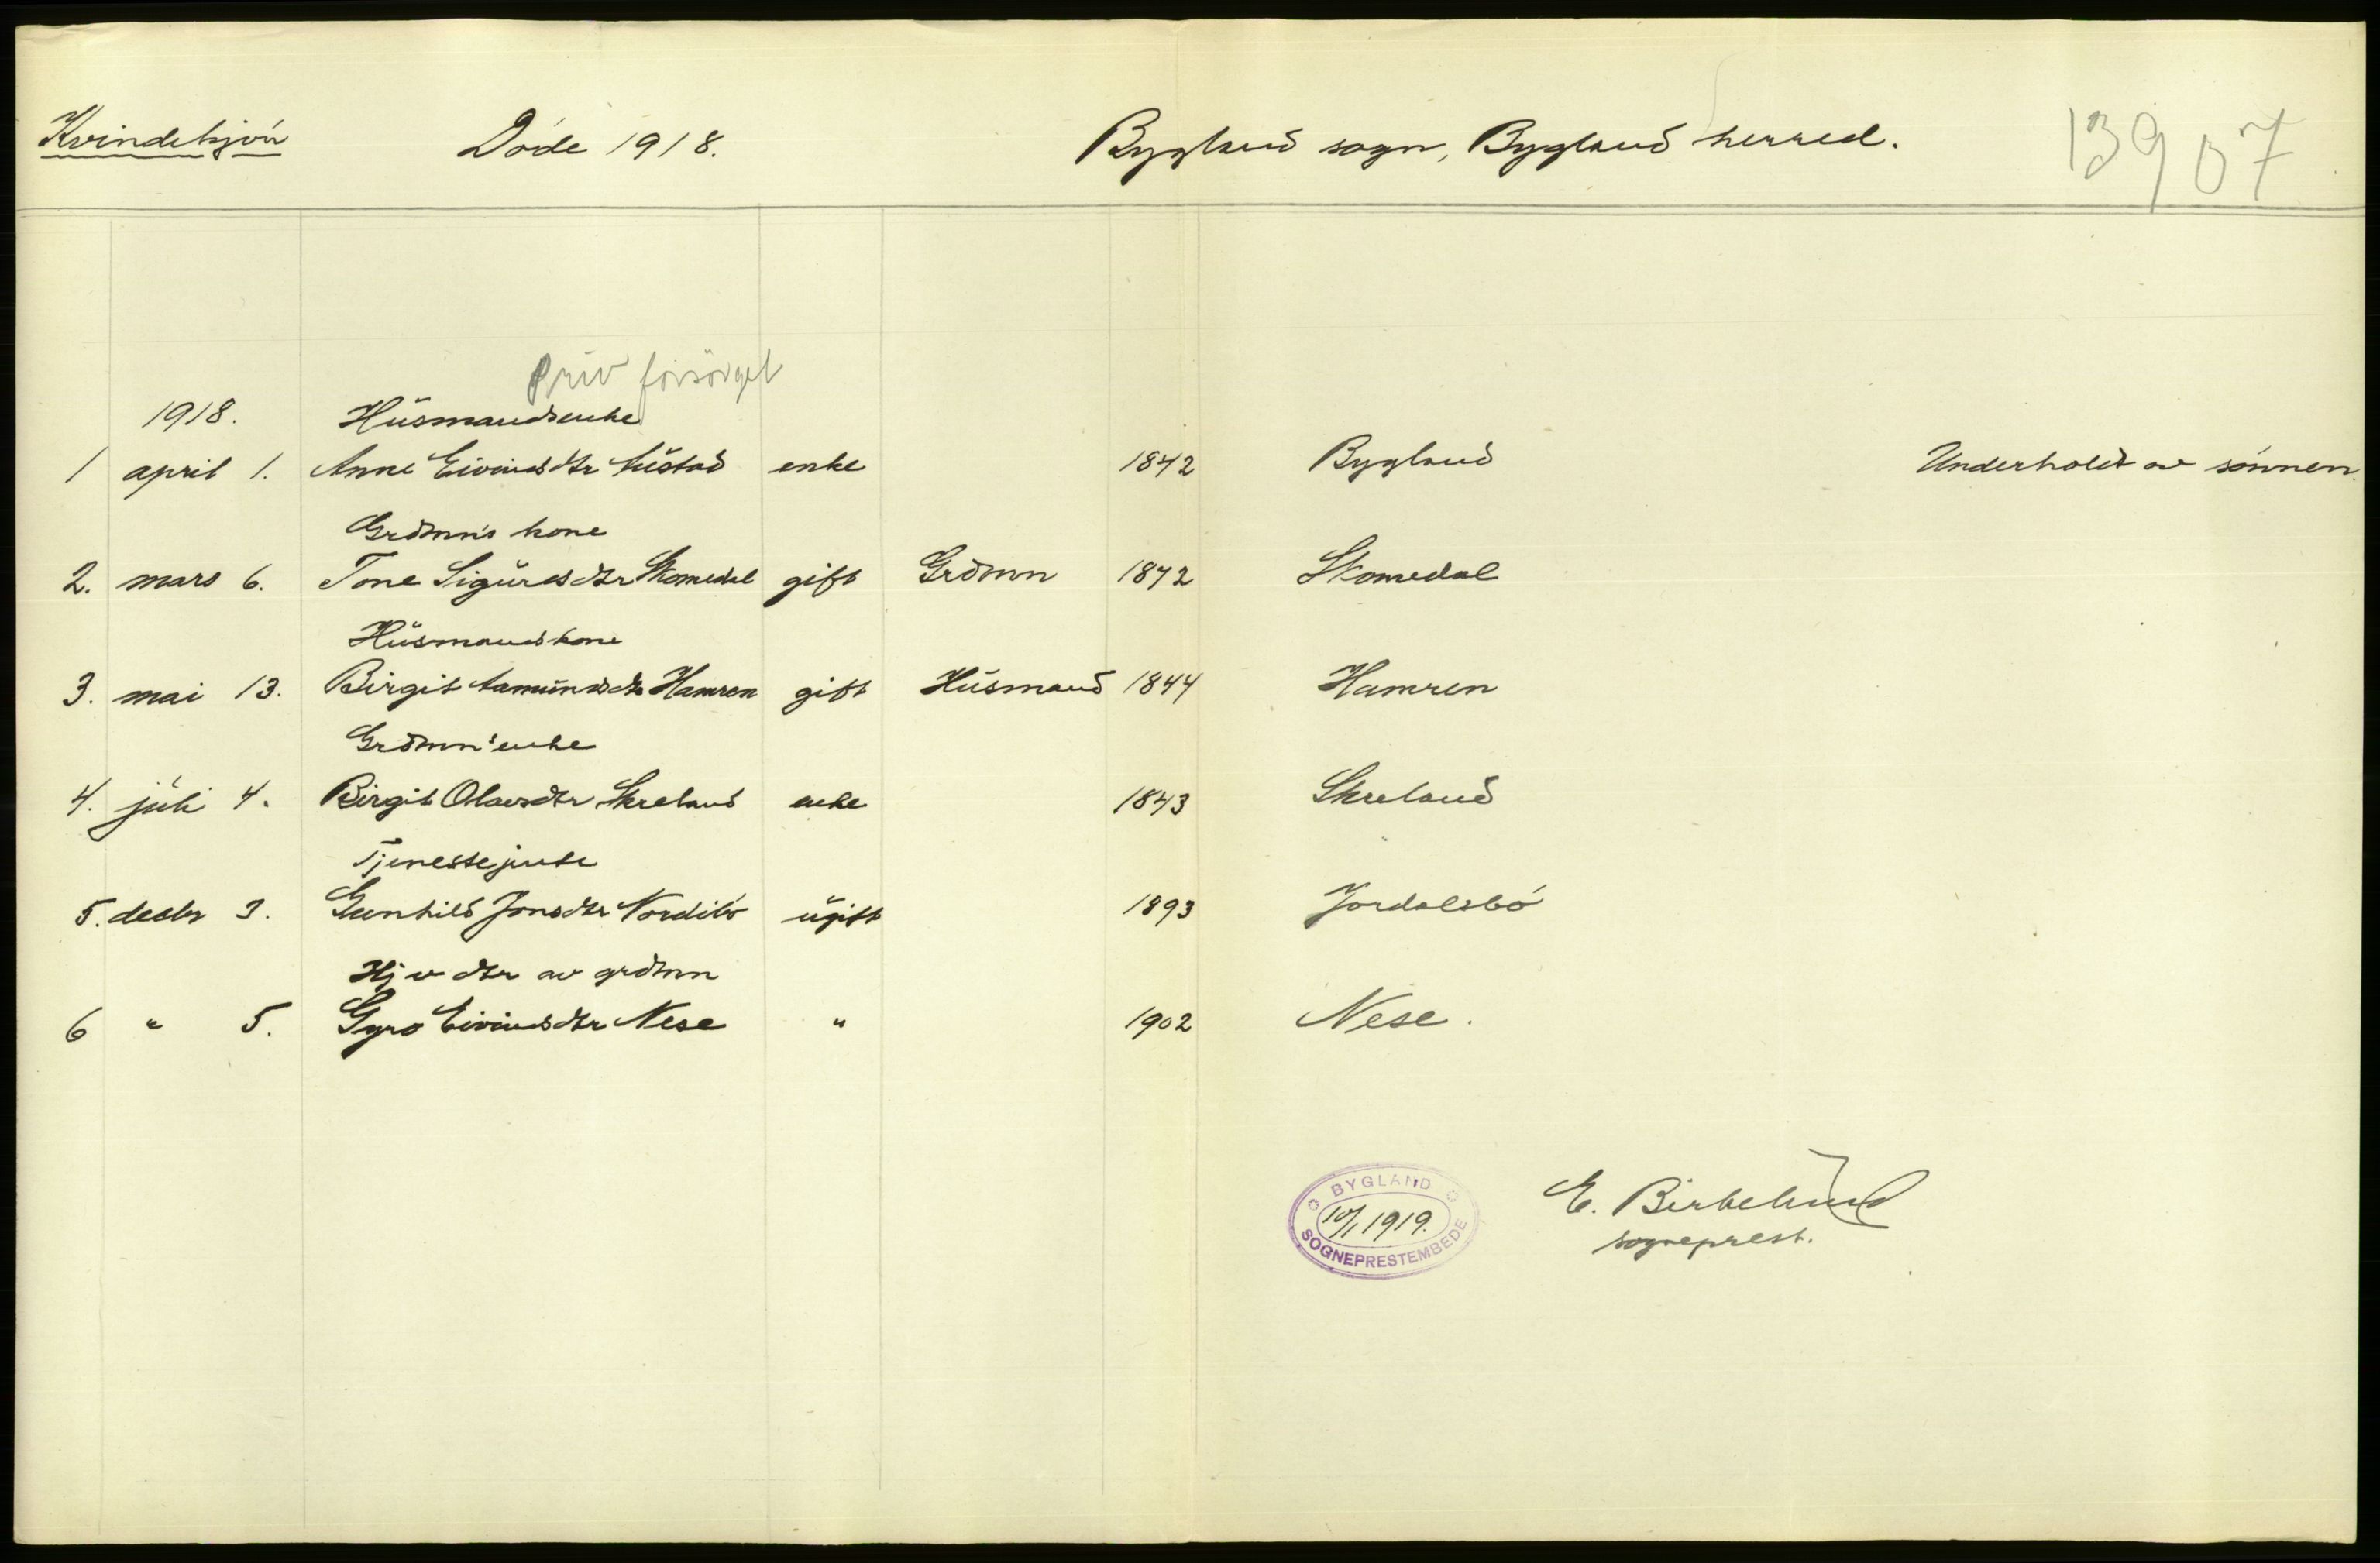 Kvindekjøn Døde 1918. Bygland sogn, Bygland herred. 13907
Priv forsørget
1918. Husmandsenke
1 april 1. Anne Eivindsdtr enke 1842 Bygland Underholdt av sønnen.
Grdmn's kone
2. mars 6. Tone Sigurdsdtr Skomedal gift Grdmn 1842 Skomedal
Husmandskone
3. mai 13. Birgit Aamundsdtr Hamren gift Husmand 1844 Hamren
Grdmn's enke
4. juli 4. Birgit Olavsdtr Skreland enke 1843 Skreland
Tjenestejente
5. decbr 3. Gunhild Jonsdtr ugift 1893 Jordalsbø
Hjv dtr av grdmn
6 " 5. Gyro Eivindsdtr Nese " 1902 Nese.
BYGLAND
10/1 1919.
SOGNEPRESTEMBEDE
E. Birkelund
sogneprest.